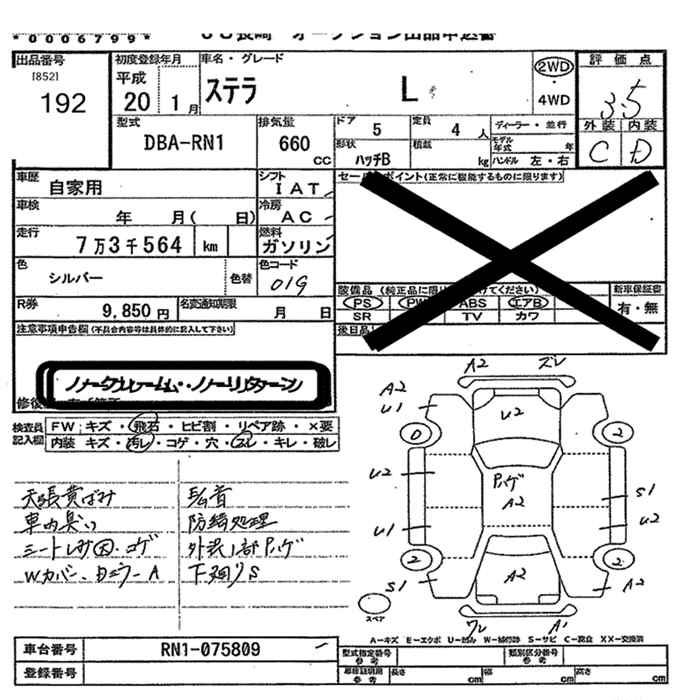 * 0 0 0 6 7 9 9 *
ＪＵ長崎 オークション出品申込書
出品番号
[852]
192
初度登録年月
平成
20 1 月
車名・グレード
ステラ L
2WD・
4WD
評価点
3.5
外装 内装
C D
型式
DBA-RN1
排気量
660
cc
ドア 5
定員 4 人
ディーラー・並行
モデル年式 年
形状 ハッチB
積載 kg
ハンドル 左・右
車歴
自家用
シフト
I A T
車検
年 月( 日)
冷房
A C
走行
7万3千564 km
燃料
ガソリン
色
シルバー
色替
色コード
019
R券
9,850 円
名変通知期限
月 日
セールスポイント(正常に機能するものに限ります)
装備品 (純正品に限り けてください)
PS PW ABS エアB
SR TV カワ
新車保証書
有・無
後日品
注意事項申告欄(不具合内容等は具体的に記入して下さい)
ノークレーム・ノーリターン
検査員記入欄
FW キズ・飛石・ヒビ割・リペア跡・×要
内装 キズ・汚レ・コゲ・穴・スレ・キレ・破レ
天張黄ばみ
車内臭い
シートレサ大・コゲ
Wカバー、ドミラーA
弘首
防錆処理
外装1部ハゲ
下廻りS
A2 ズレ
A2
U1
U2
0
2
ハゲ
A2
U2
S1
U1
U2
2
2
S1
A2
A2
ワレ A1
スペア
A－キズ E－エクボ U－凹み W－補修跡 S－サビ C－腐食 XX－交換済
車台番号
RN1-075809
登録番号
型式指定番号
参考
類別区分番号
参考
車検証明用
参考
長さ cm
幅 cm
高さ cm